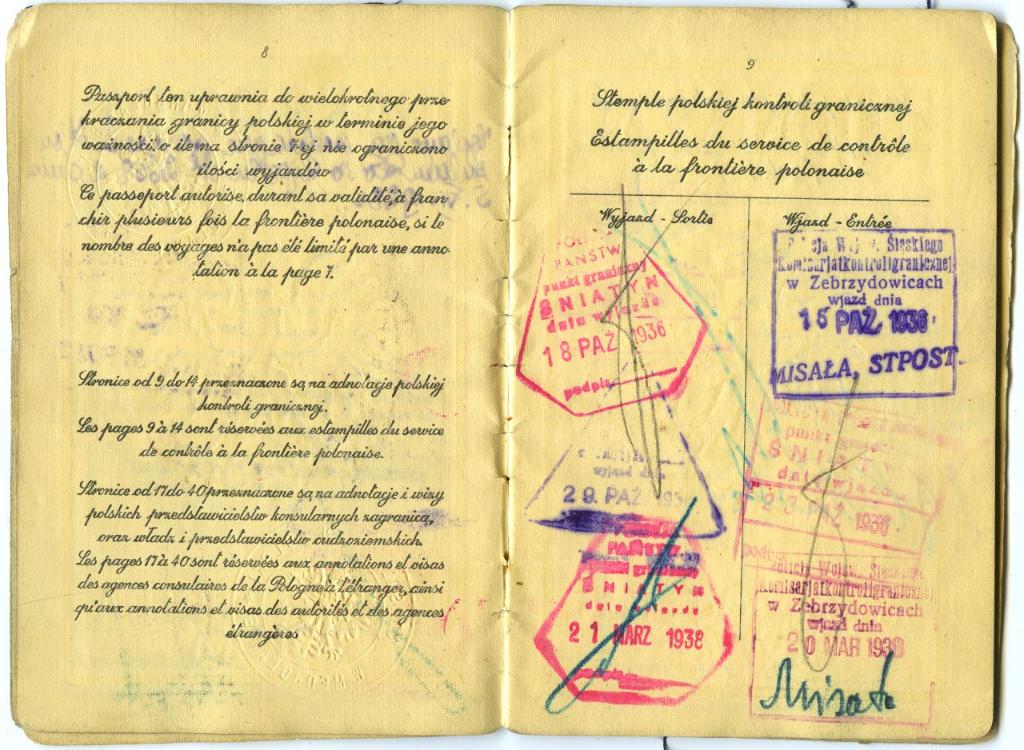 8
Paszport ten uprawnia do wielokrotnego prze-
kraczania granicy polskiej w terminie jego
ważności, o ile na stronie 7-ej nie ograniczono
ilości wyjazdów
Ce passeport autorise, durant sa validité, à fran-
chir plusieurs fois la frontière polonaise, si le
nombre des voyages n'a pas été limité par une anno-
tation à la page 7.
Stronice od 9 do 14 przeznaczone są na adnotacje polskiej
kontroli granicznej.
Les pages 9 à 14 sont réservées aux estampilles du service
de contrôle à la frontière polonaise.
Stronice od 17 do 40 przeznaczone są na adnotacje i wizy
polskich przedstawicielstw konsularnych zagranicą,
oraz władz i przedstawicielstw cudzoziemskich.
Les pages 17 à 40 sont réservées aux annotations et visas
des agences consulaires de la Pologne à l'étranger, ainsi
qu'aux annotations et visas des autorités et des agences
étrangères
9
Stemple polskiej kontroli granicznej
Estampilles du service de contrôle
à la frontière polonaise
Wyjazd - Sortie
Wjazd - Entrée
PAŃSTW
punkt graniczny
ŚNIATYN
data wyjazdu
18 PAŹ 1936
podpis
Wojew. Śląskiego
Komisarjat kontroli granicznej
w Zebrzydowicach
wjazd dnia
15 PAŹ 1936
MISAŁA, ST POST.
wyjazd dnia
29. PAŹ 193
punkt
ŚNIATY
data wjazdu
193
PAŃSTW
graniczny
ŚNIATYN
data
21 MARZ 1938
podpis
Wojew. Śląskie
Komisarjat kontroli graniczne
w Zebrzydowicach
wjazd dnia
20 MAR 1938
Misała